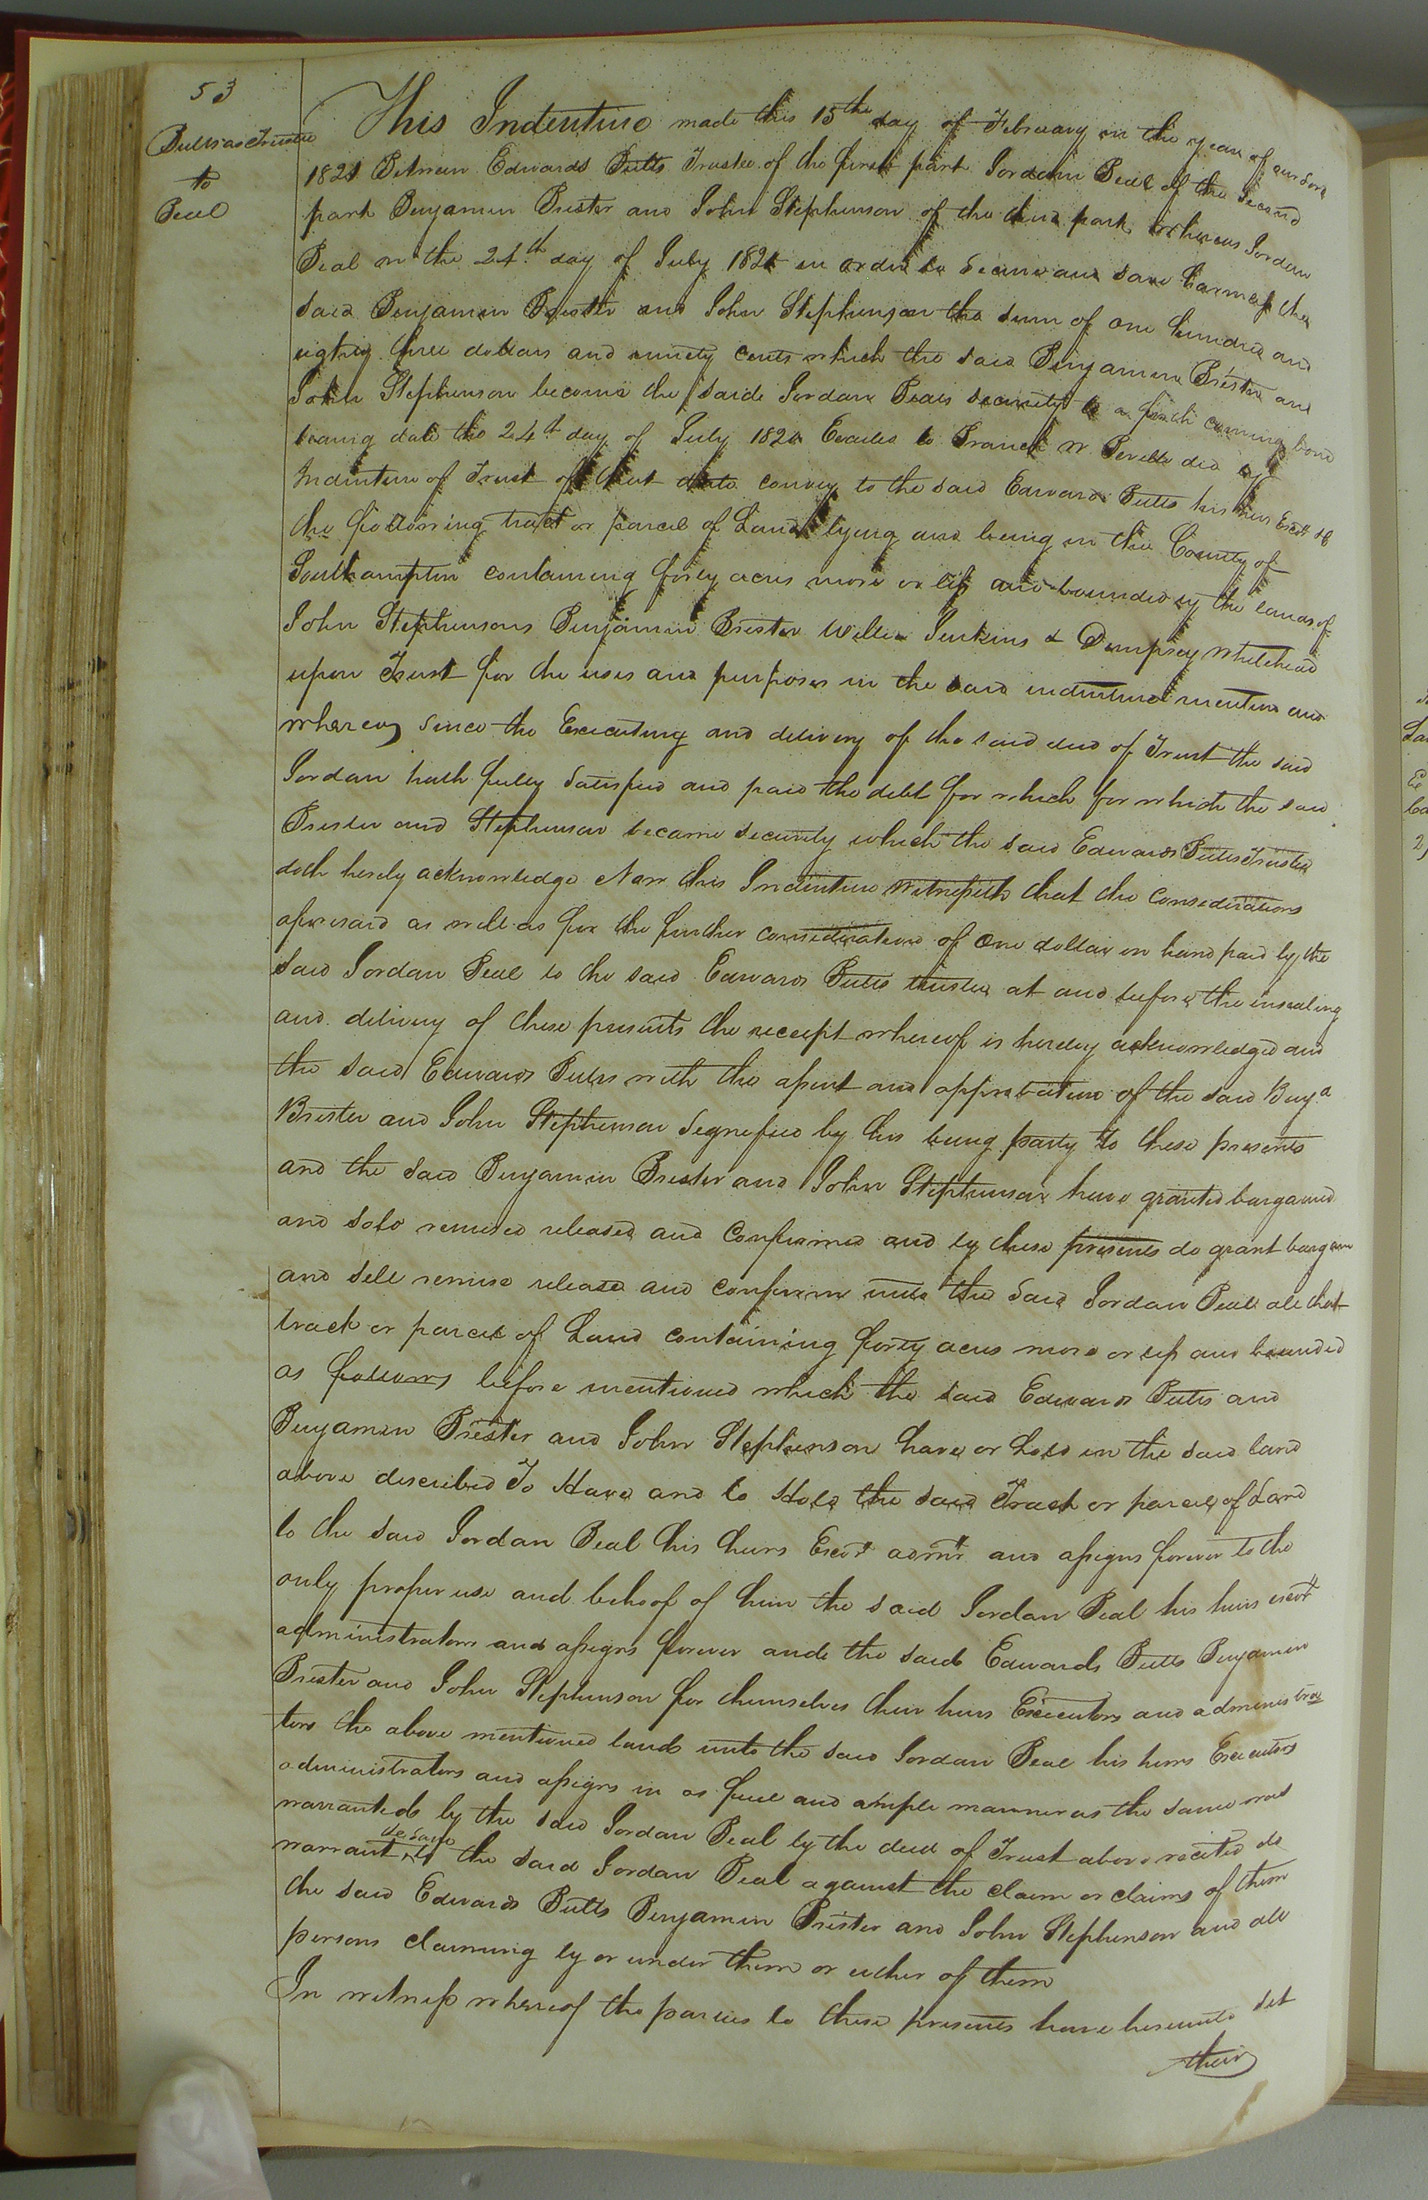 53
Butts as Trustee
to
Beal
This Indenture made this 15th day of February in the year of our Lord
1821 Between Edwards Butts Trustee of the first part Jordan Beal of the second
part Benjamin Brister and John Stephenson of the third part Whereas Jordan
Beal on the 24th day of July 182 in order to secure and save harmless the
said Benjamin Brister and John Stephenson the sum of one hundred and
eighty three dollars and ninety cents which the said Benjamin Brister and
John Stephenson become the said Jordan Beals security to a forth coming bond
bearing date the 24th day of July 182 did by
Indenture of Trust of that date convey to the said Edwards Butts his heirs Excrs &c
the following tract or parcel of Land lying and being in the County of
Southampton containing forty acres more or less and bounded by the lands of
John Stephensons Benjamin Brister Willie Jenkins & Dempsey Whitehead
upon Trust for the uses and purposes in the said indenture mention and
whereas since the Executing and delivery of the said deed of Trust the said
Jordan hath fully satisfied and paid the debt for which for which the said
Brister and Stephenson became security which the said Edwards Butts Trustee
doth hereby acknowledge Now this Indenture witnesseth that the considerations
aforesaid as well as for the further consideration of one dollar in hand paid by the
said Jordan Beal to the said Edwards Butts trustee at and before the insealing
and delivery of these presents the receipt whereof is hereby acknowledged and
the said Edwards Butts with the assent and approbation of the said Benja
Brister and John Stephenson signified by this being party to these presents
and the said Benjamin Brister and John Stephenson have granted bargained
and sold remised released and confirmed and by these presents do grant bargain
and sell remise release and confirm unto the said Jordan Beal all that
track or parcel of Land containing forty acres more or less and bounded
as follows before mentioned which the said Edwards Butts and
Benjamin Brister and John Stephenson have or hold in the said land
above described To Have and to Hold the said Tract or parcel of Land
to the said Jordan Beal his heirs Excrs admrs and assigns forever to the
only proper use and behoof of him the said Jordan Beal his heirs excrs
administrators and assigns forever and the said Edwards Butts Benjamin
Brister and John Stephenson for themselves their heirs Executors and administra
tors the above mentioned land unto the said Jordan Beal his heirs Executors
administrators and assigns in as full and ample manner as the same was
warranted by the said Jordan Beal by the deed of Trust above recited do
warrant to the said Jordan Beal against the claim or claims of them
the said Edwards Butts Benjamin Brister and John Stephenson and all
persons claiming by or under them or either of them
In witness whereof the parties to these presents have hereunto set
their